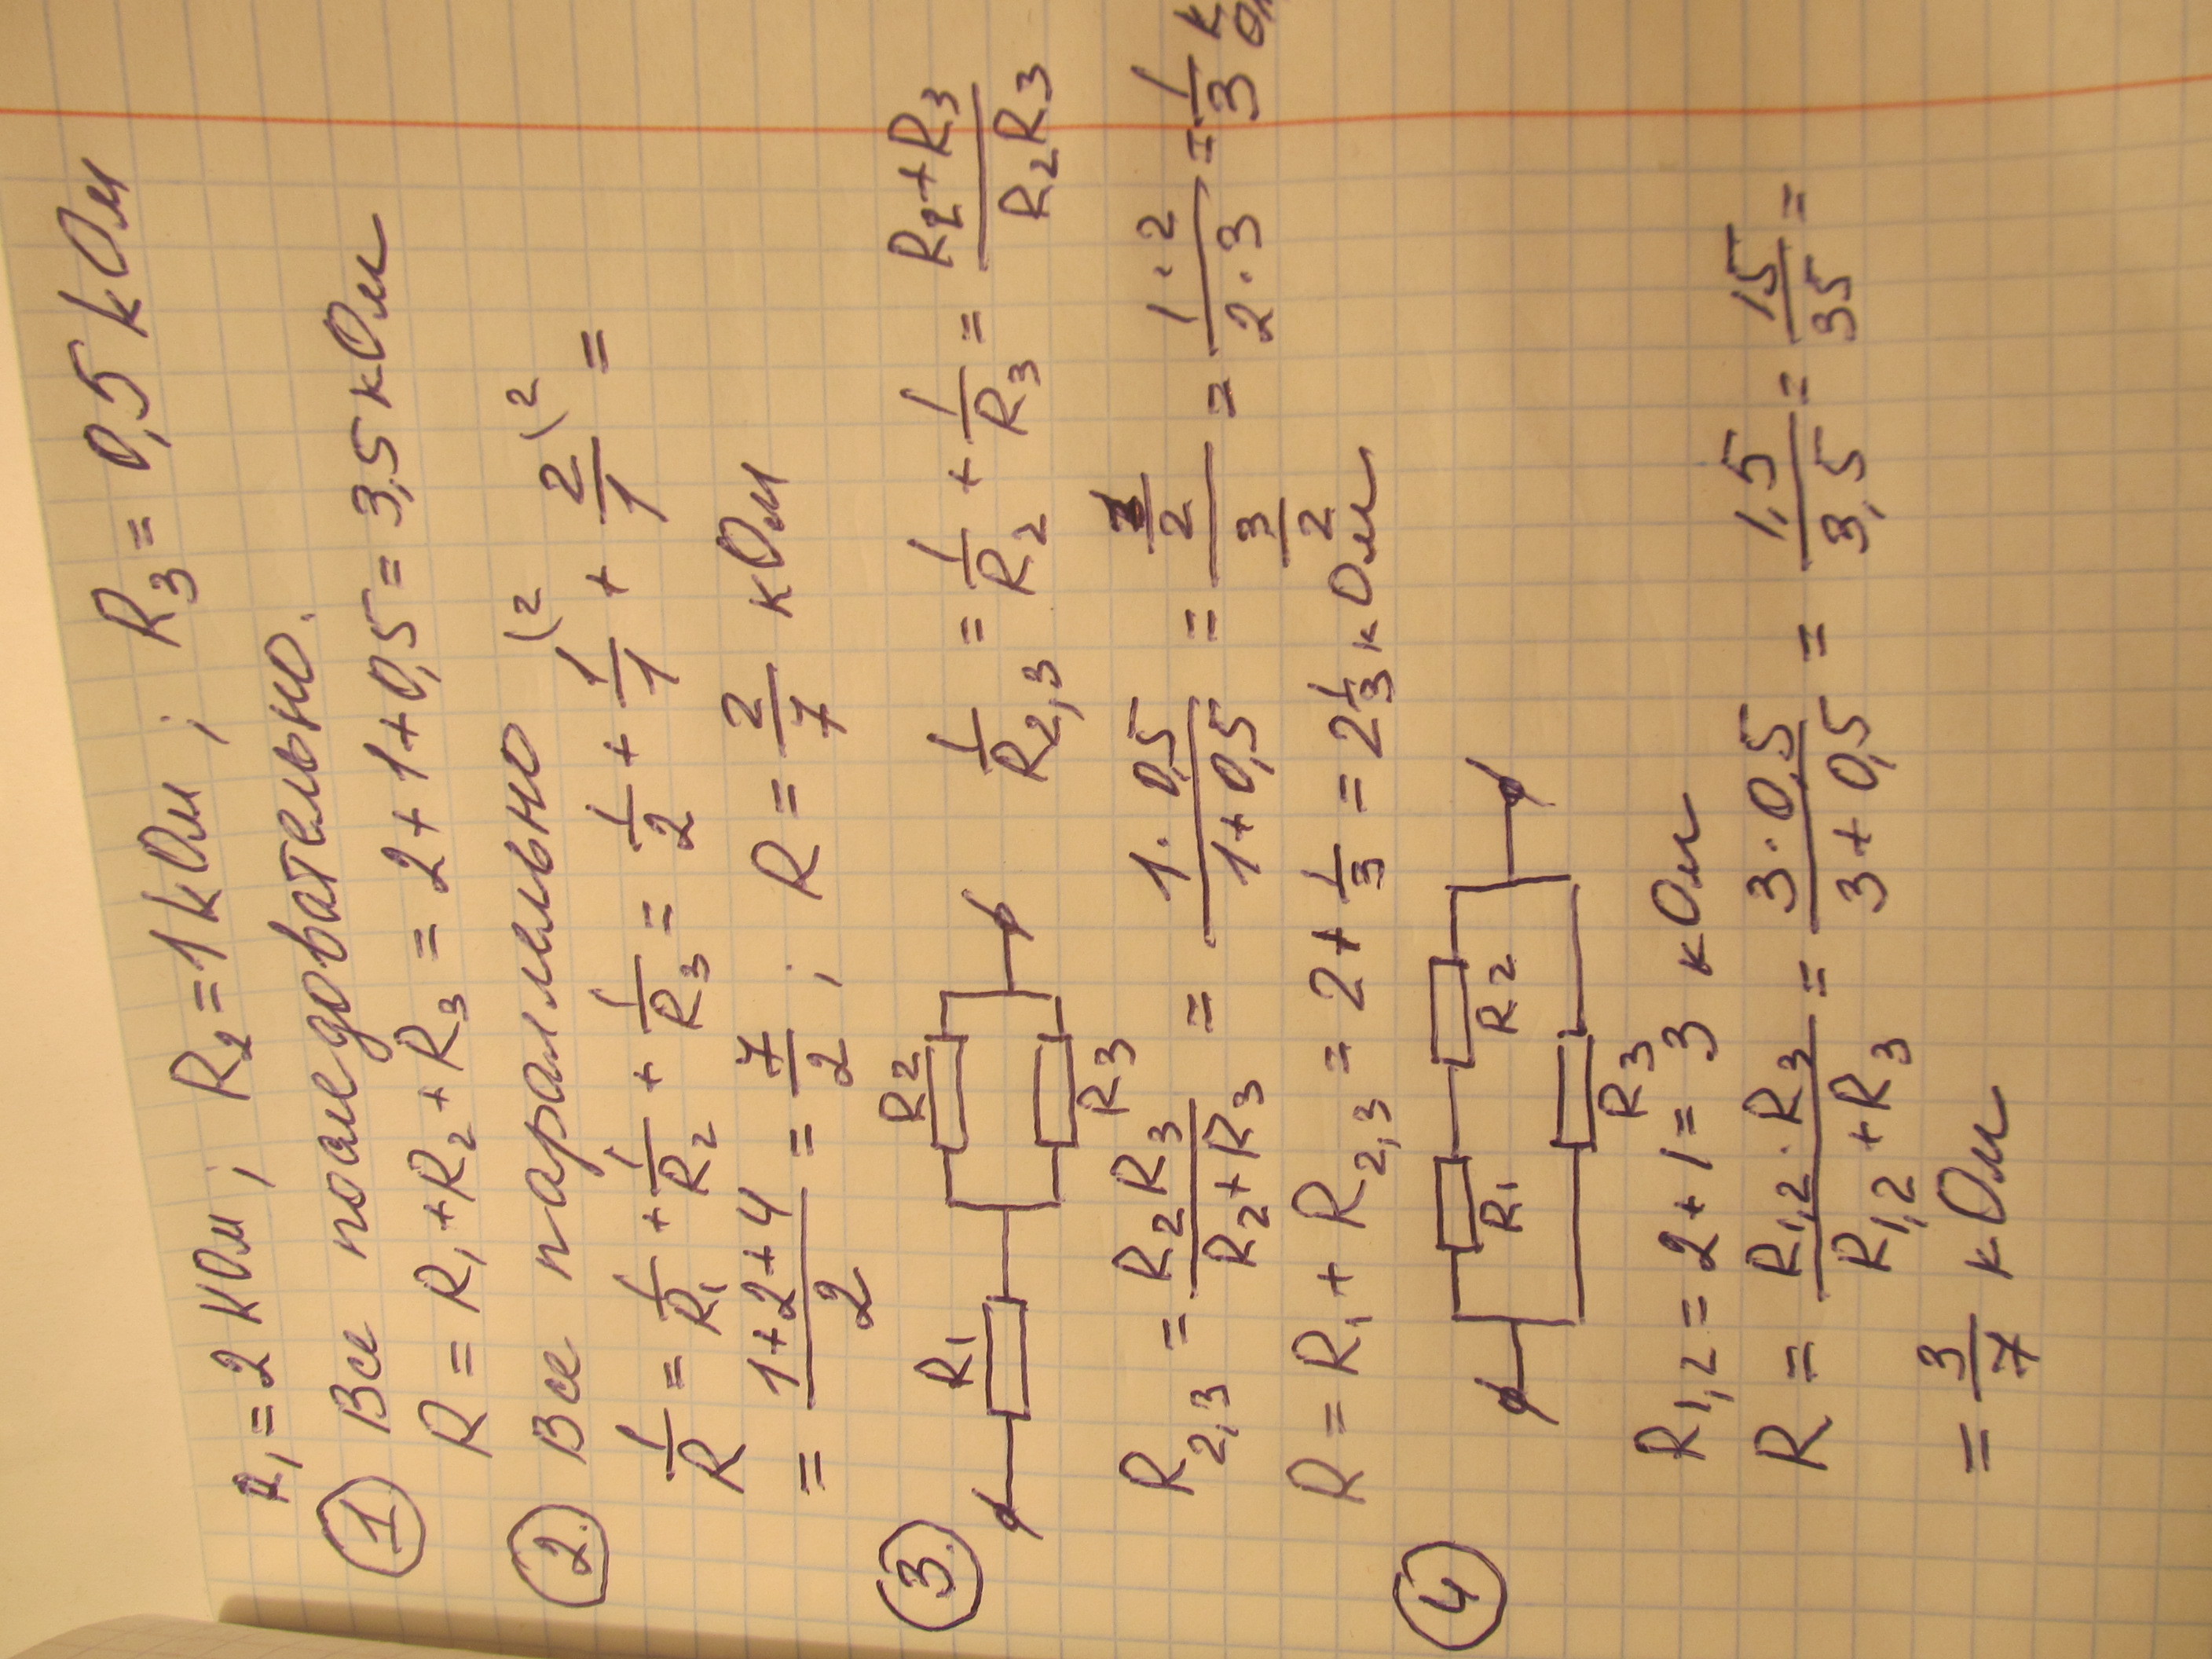 R₁ = 2 кОм; R₂ = 1 кОм; R₃ = 0,5 кОм
① Все последовательно.
R = R₁ + R₂ + R₃ = 2 + 1 + 0,5 = 3,5 кОм
②. Все параллельно
1/R = 1/R₁ + 1/R₂ + 1/R₃ = 1/2 + 1/1 \² + 2/1 \² =
= (1+2+4)/2 = 7/2; R = 2/7 кОм
③.
R₁
R₂
R₃
1/R₂,₃ = 1/R₂ + 1/R₃ = (R₂+R₃)/(R₂R₃)
R₂,₃ = (R₂R₃)/(R₂+R₃) = (1·0,5)/(1+0,5) = (1/2)/(3/2) = (1·2)/(2·3) = 1/3 кОм
R = R₁ + R₂,₃ = 2 + 1/3 = 2 1/3 кОм
④
R₁
R₂
R₃
R₁,₂ = 2 + 1 = 3 кОм
R = (R₁,₂ · R₃)/(R₁,₂ + R₃) = (3·0,5)/(3+0,5) = 1,5/3,5 = 15/35 =
= 3/7 кОм